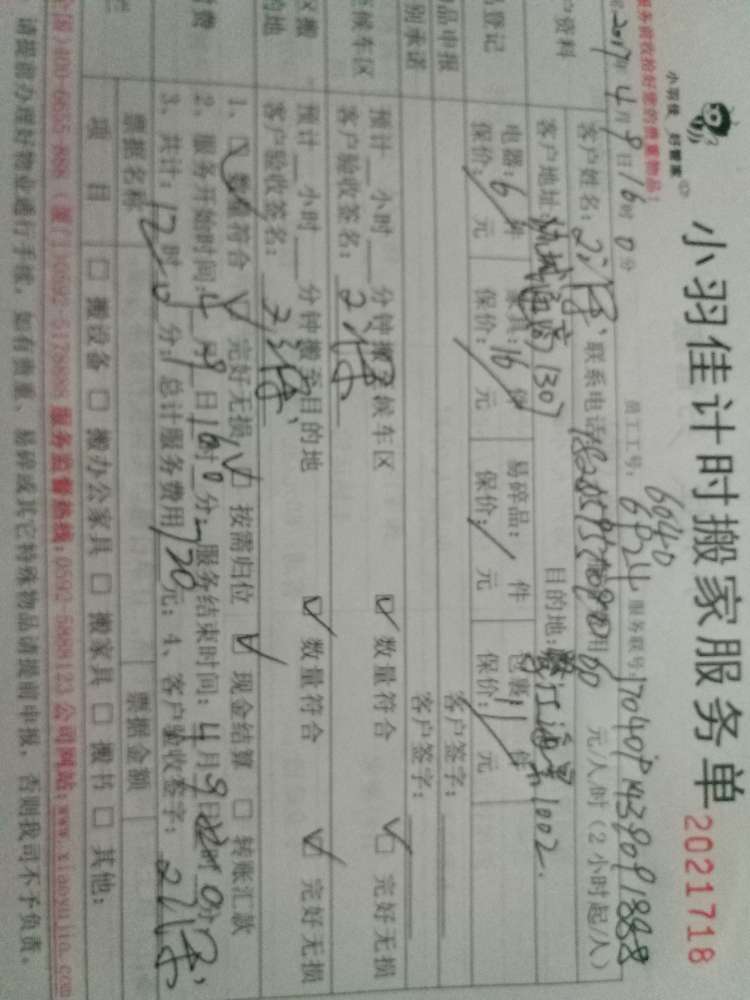 小羽佳计时搬家服务单
2021718
小羽佳 好管家
服务前收拾好您的贵重物品!
2017年4月9日16时0分
员工工号: 6040
6924
服务联号:
客户姓名:
联系电话
费用60元/人/时(2小时起/人)
户资料
客户地址:
1307
目的地:
1002.
品登记
电器:6件
家具:16件
易碎品: 件
包裹:11件
保价: 元
保价: 元
保价: 元
保价: 元
品申报
客户签字:
别承诺
客户签字:
候车区
预计 小时 分钟搬至候车区
数量符合
完好无损
客户验收签名:
区搬
的地
预计 小时 分钟搬至目的地
数量符合
完好无损
客户验收签名:
付费
1、数量符合 完好无损 按需归位 现金结算 转账汇款
2、服务开始时间:4月9日16时0分 服务结束时间:4月9日
3、共计:12时0分;总计服务费用720元;4、客户验收签字:
票据名称
票据金额
项目
搬设备 搬办公家具 搬家具 搬书 其他:
全国)400-6655-888 (厦门)0592-5178888 服务监督热线:0592-5888123 公司网站:www.xiaoyujia.com
请提前办理好物业通行手续,如有贵重、易碎或其它特殊物品请提前申报,否则我司不予负责。